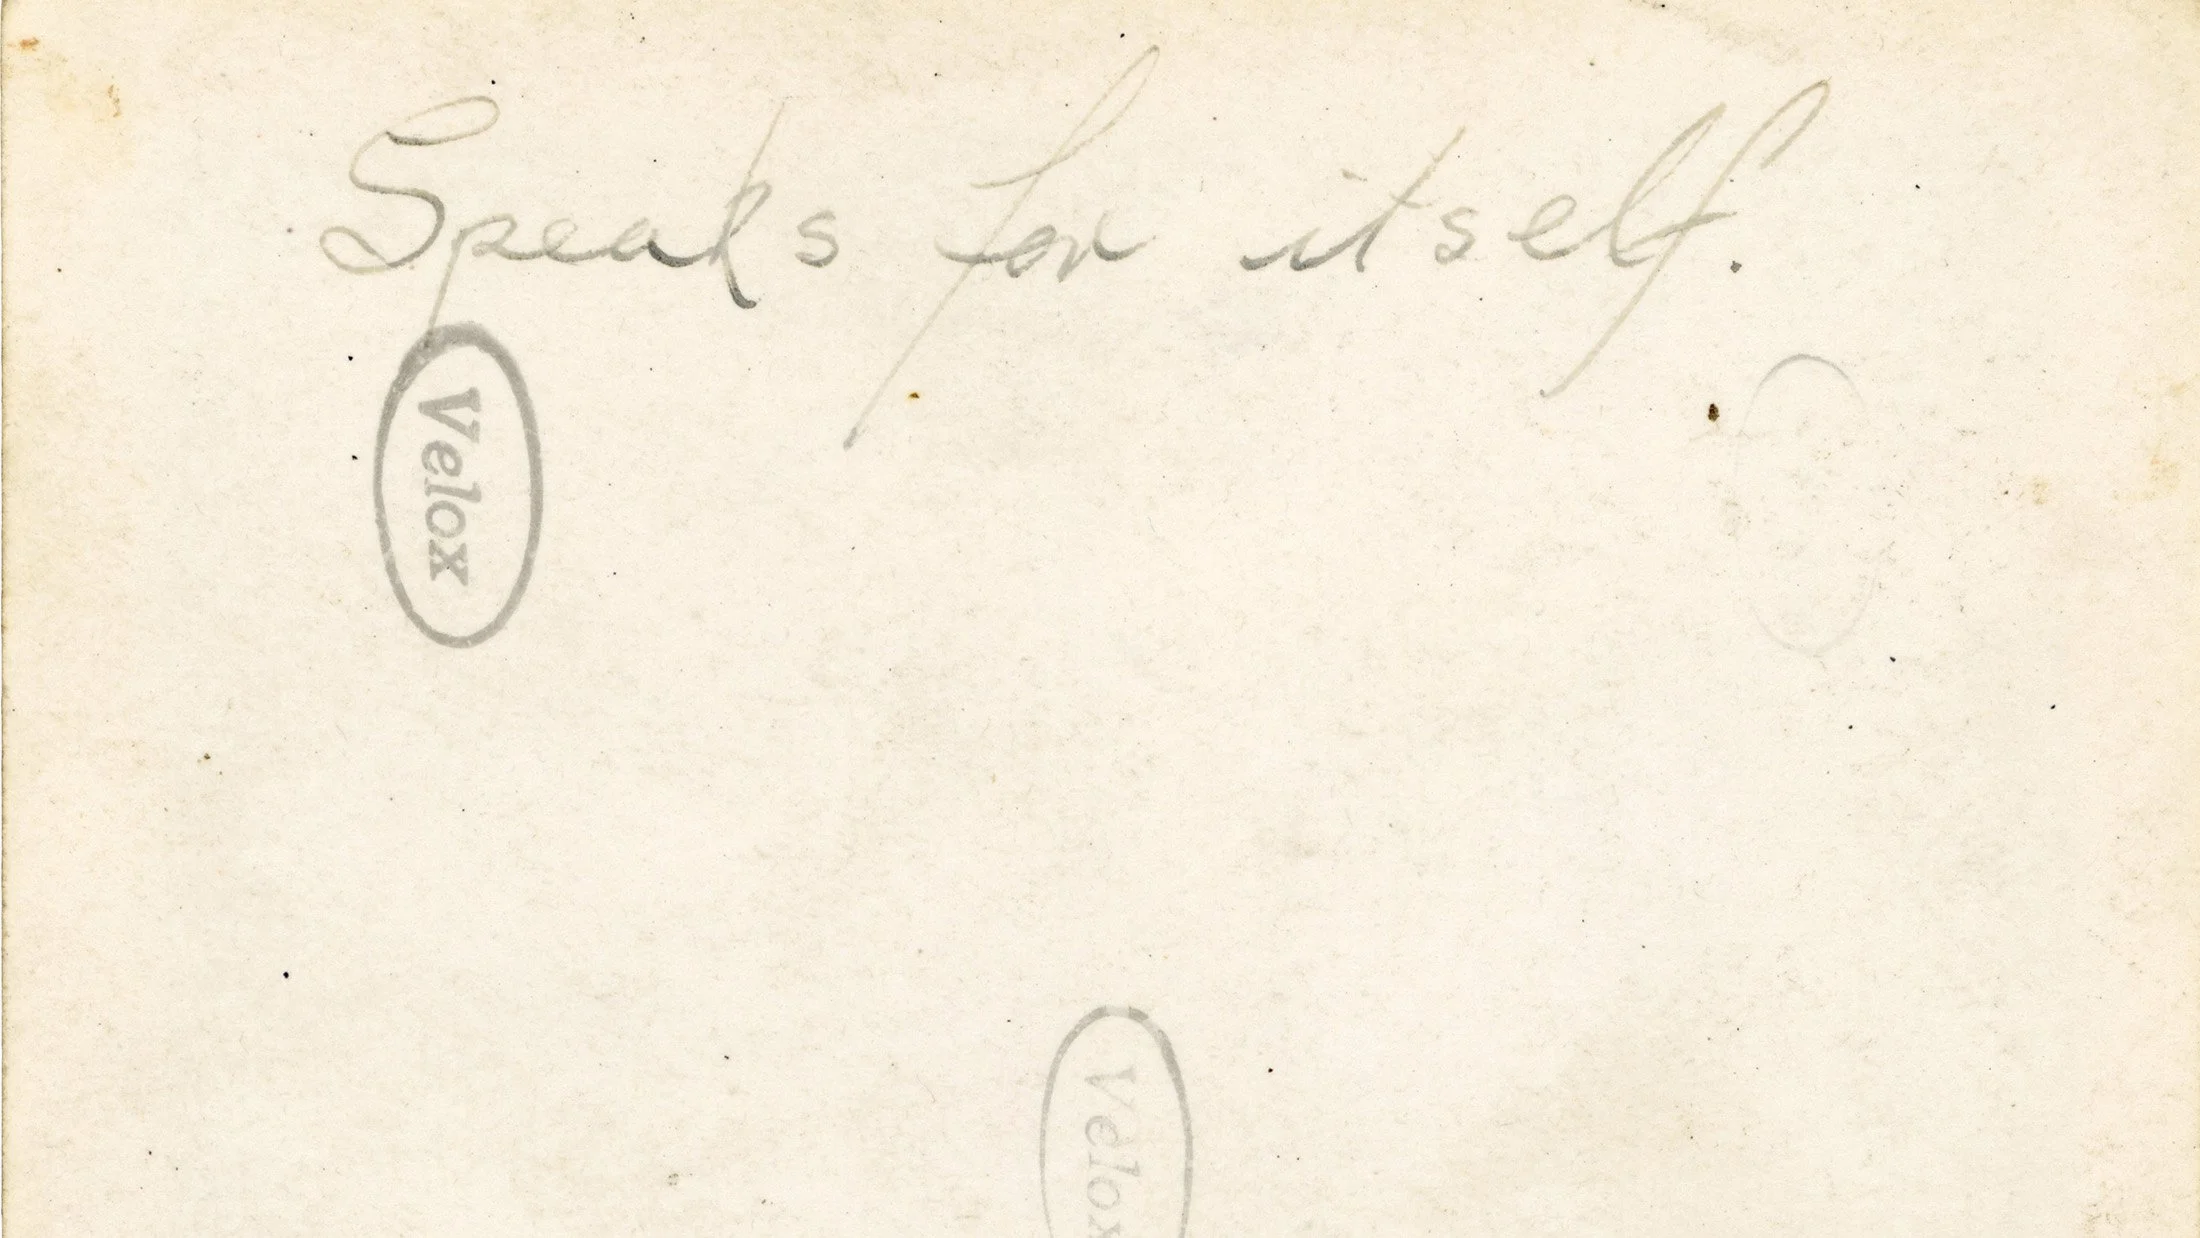 Speaks for itself.
Velox
Velox